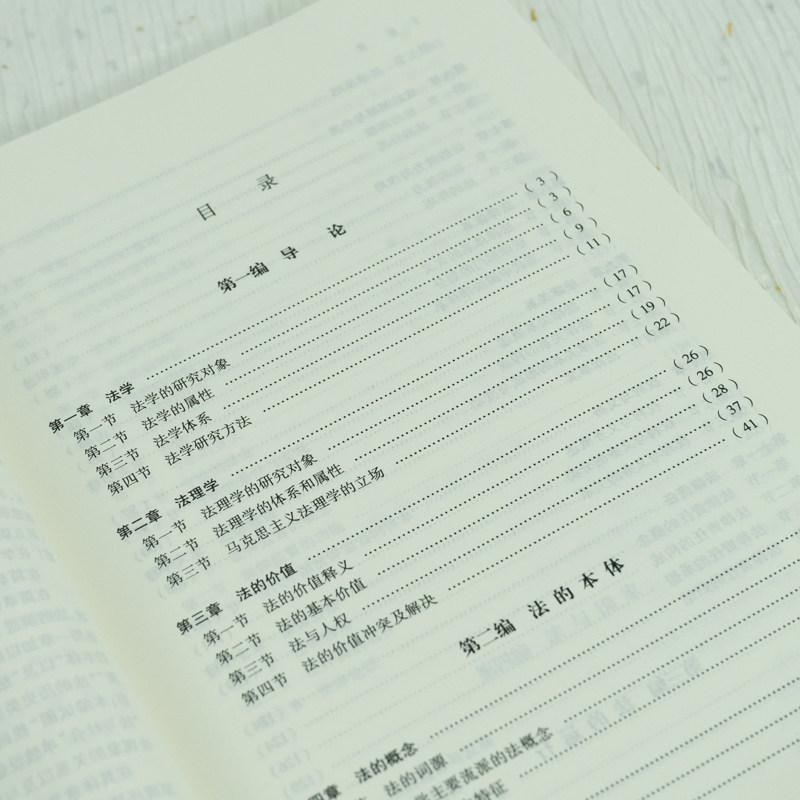 目 录
第一编 导 论
第一章 法学 (3)
第一节 法学的研究对象 (3)
第二节 法学的属性 (6)
第三节 法学体系 (9)
第四节 法学研究方法 (11)
第二章 法理学 (17)
第一节 法理学的研究对象 (17)
第二节 法理学的体系和属性 (19)
第三节 马克思主义法理学的立场 (22)
第三章 法的价值 (26)
第一节 法的价值释义 (26)
第二节 法的基本价值 (28)
第三节 法与人权 (37)
第四节 法的价值冲突及解决 (41)
第二编 法的本体
四章 法的概念
法的词源
主要流派的法概念
特征